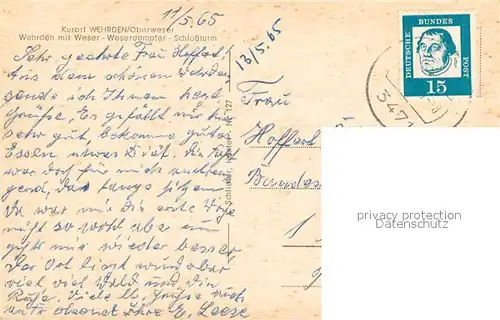 11/5.65
Kurort WEHRDEN/Oberweser
Wehrden mit Weser - Weserdampfer - Schloßturm
13/5.65
Sehr geehrte Frau Hoffart!
Aus dem schönen Wehrden
sende ich Ihnen herzl.
Grüße. Es gefällt mir hier
sehr gut bekomme gutes
Essen etwas Diät. Die Fahrt
war doch für mich
das lange sitzen
Da war mir die erste
nicht so wohl aber nun
geht mir wieder besser.
Der Ort liegt
viel viel Wald und die
Ruhe. Viele lb. Grüße auch
Ihre E. Leese
Frau
Hoffart
Bundes
1
127
DEUTSCHE BUNDES POST
15
347
privacy protection
Datenschutz